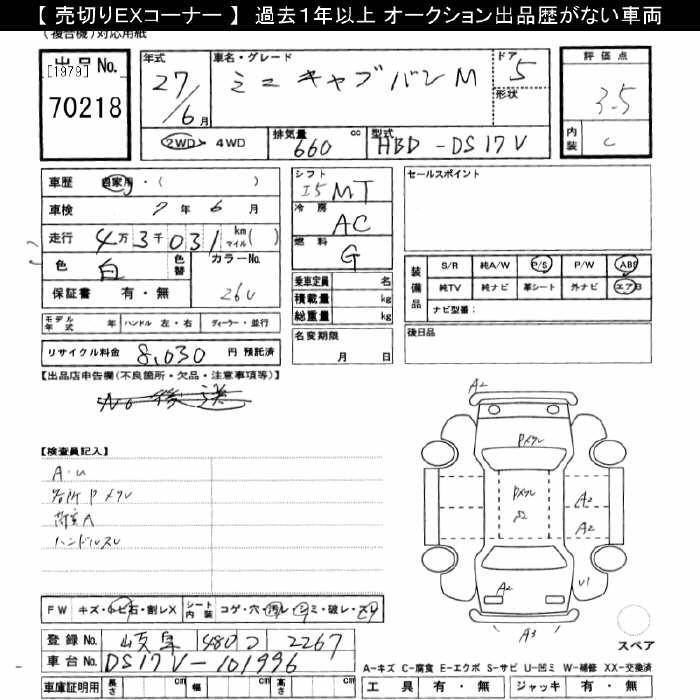 【 売切りEXコーナー 】 過去１年以上 オークション出品歴がない車両
(複合機)対応用紙
出品No.
[1979]
70218
年式
27/6月
車名・グレード
ミニキャブバンM
ドア
5
形状
評価点
3.5
内装
C
2WD・4WD
排気量
660 cc
型式
HBD-DS17V
車歴 自家用・( )
車検 7年 6月
走行 4万3千031 km マイル( )
色 白 色替
カラーNo.
26U
保証書 有・無
モデル年式 年 ハンドル 左・右 ディーラー・並行
リサイクル料金 8,030 円 預託済
シフト
I5 MT
冷房
AC
燃料
G
乗車定員 名
積載量 kg
総重量 kg
名変期限
月 日
セールスポイント
装備品
S/R 純A/W P/S P/W ABS
純TV 純ナビ 革シート 外ナビ エアB
ナビ型番:
後日品
【出品店申告欄(不良箇所・欠品・注意事項等)】
No 後送
【検査員記入】
A・U
各所Pメクレ
荷室A
ハンドルスレ
A2
Pメクレ
Pメクレ
A2
A2
A2
U1
A3
スペア
FW キズ・トビ石・割レX
シート内装 コゲ・穴・汚レ・シミ・破レ・スレ
登録No. 岐阜 480 つ 2267
車台No. DS17V-101996
車庫証明用 長さ cm 幅 cm 高さ cm
A−キズ C−腐食 E−エクボ S−サビ U−凹ミ W−補修 XX−交換済
工具 有・無 ジャッキ 有・無